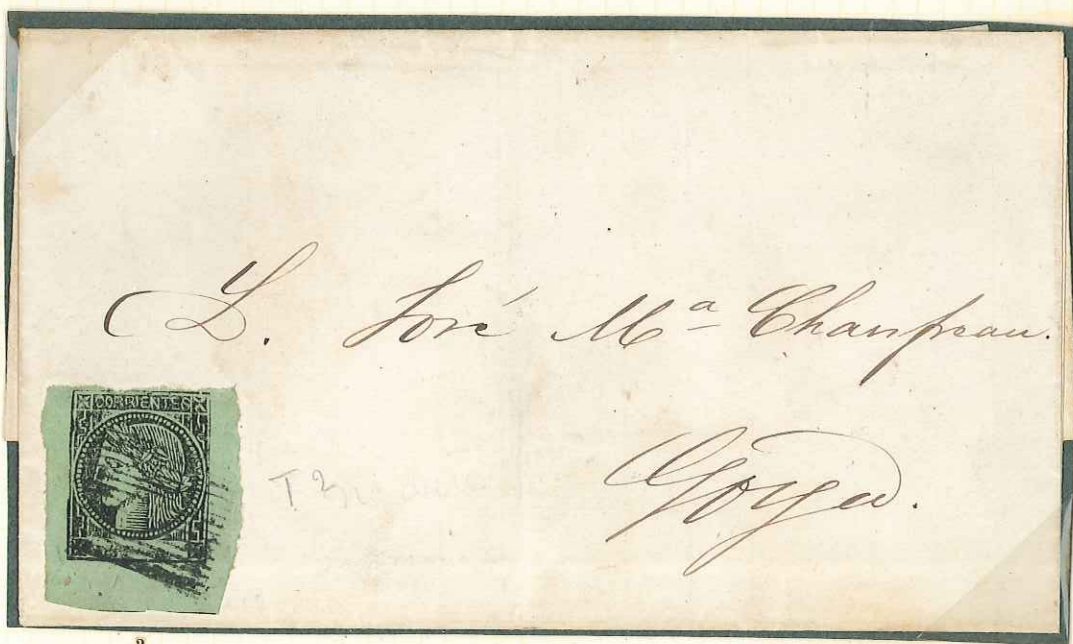 D. José Mª Chanfreau.
Goya.
CORRIENTES
T 2